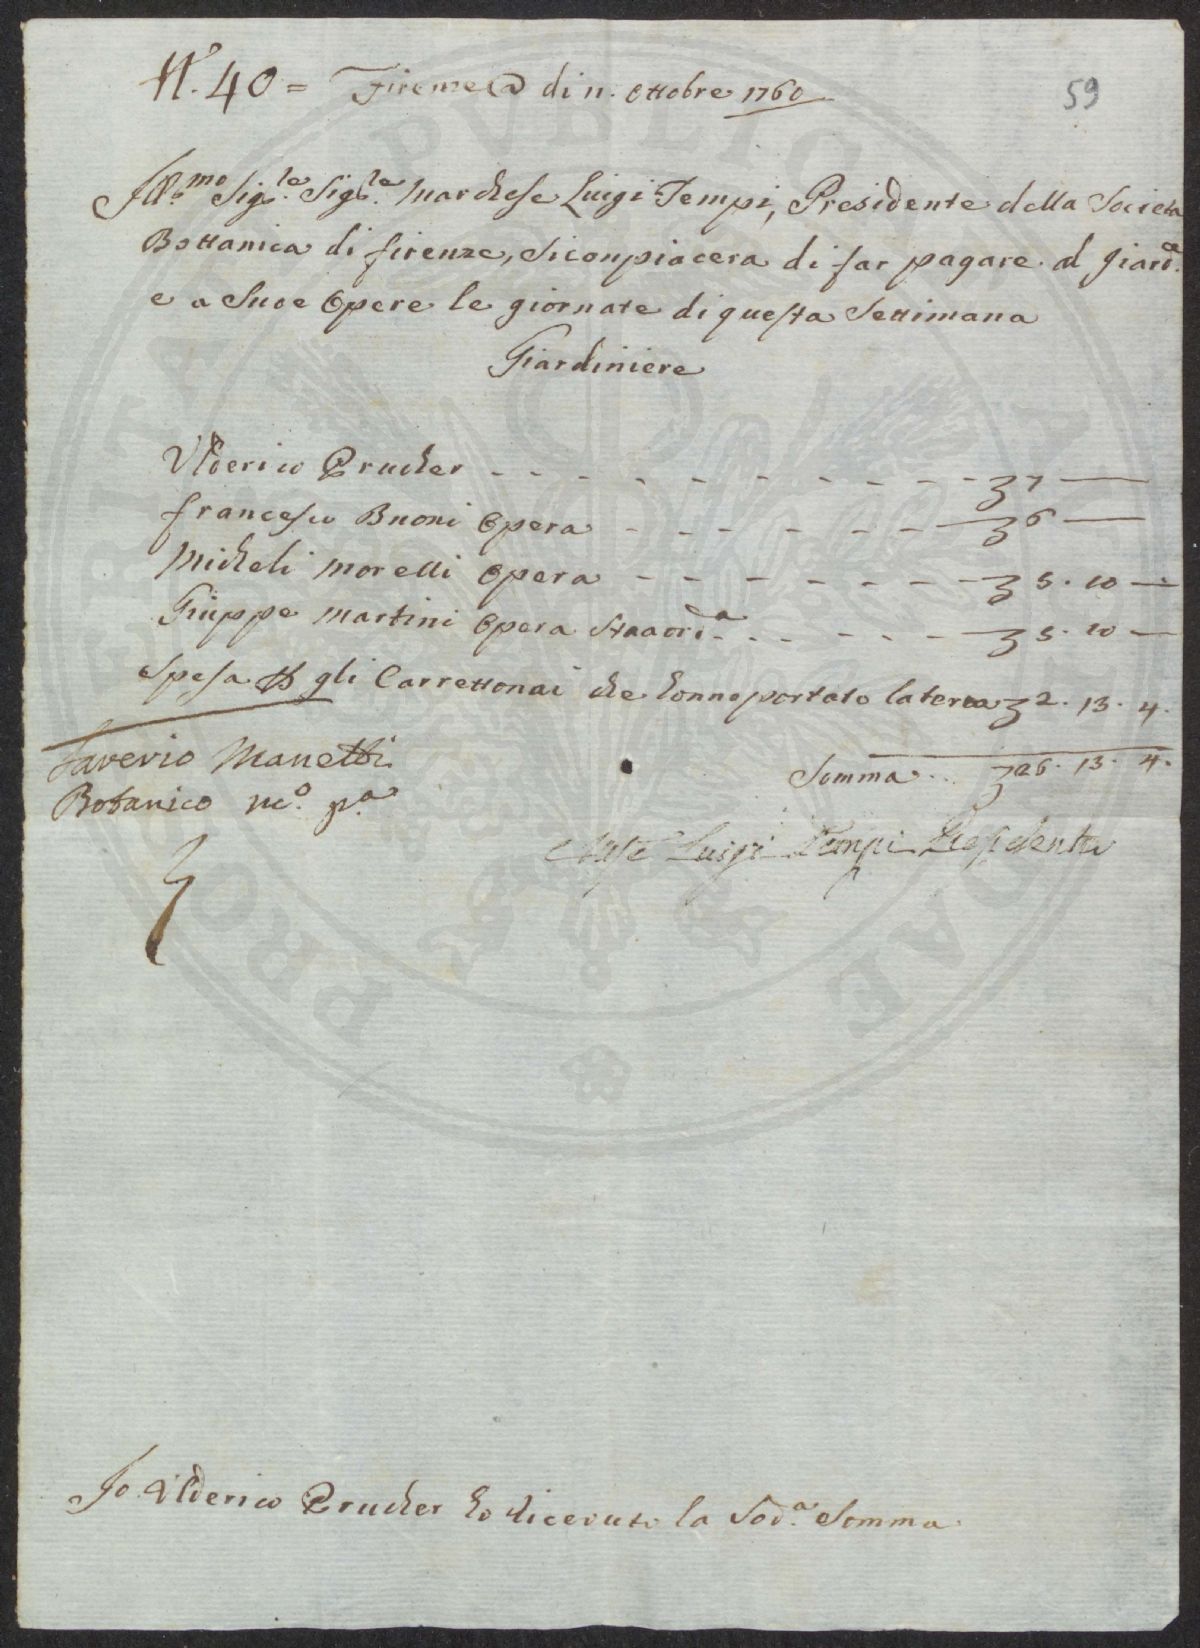 N. 40 = Firenze @ di 11. Ottobre 1760
59
Ill.mo Sig.le Sig.le Marchese Luigi Tempi, Presidente della Societa
Bottanica di firenze, Si conpiacera di far pagare al giard.e
e a Suoe Opere le giornate di questa Settimana
Giardiniere
Ulderico Prucher - - - - - - - - - - 7 —
francesco Buoni Opera - - - - - - 6 —
Micheli Morelli Opera - - - - - - - 5. 10 —
Giuppe Martini Opera Straord.a - - - - - - 5. 10 —
Spesa gli Carrettonai che honno portato la terra 2. 13. 4.
Saverio Manetti
Somma .. 26. 13. 4.
Botanico m.o p.a
Luigi Tempi Presidente
Io Ulderico Prucher ho riceuto la Sod.a Somma
PRO VERITATE
PUBLICA